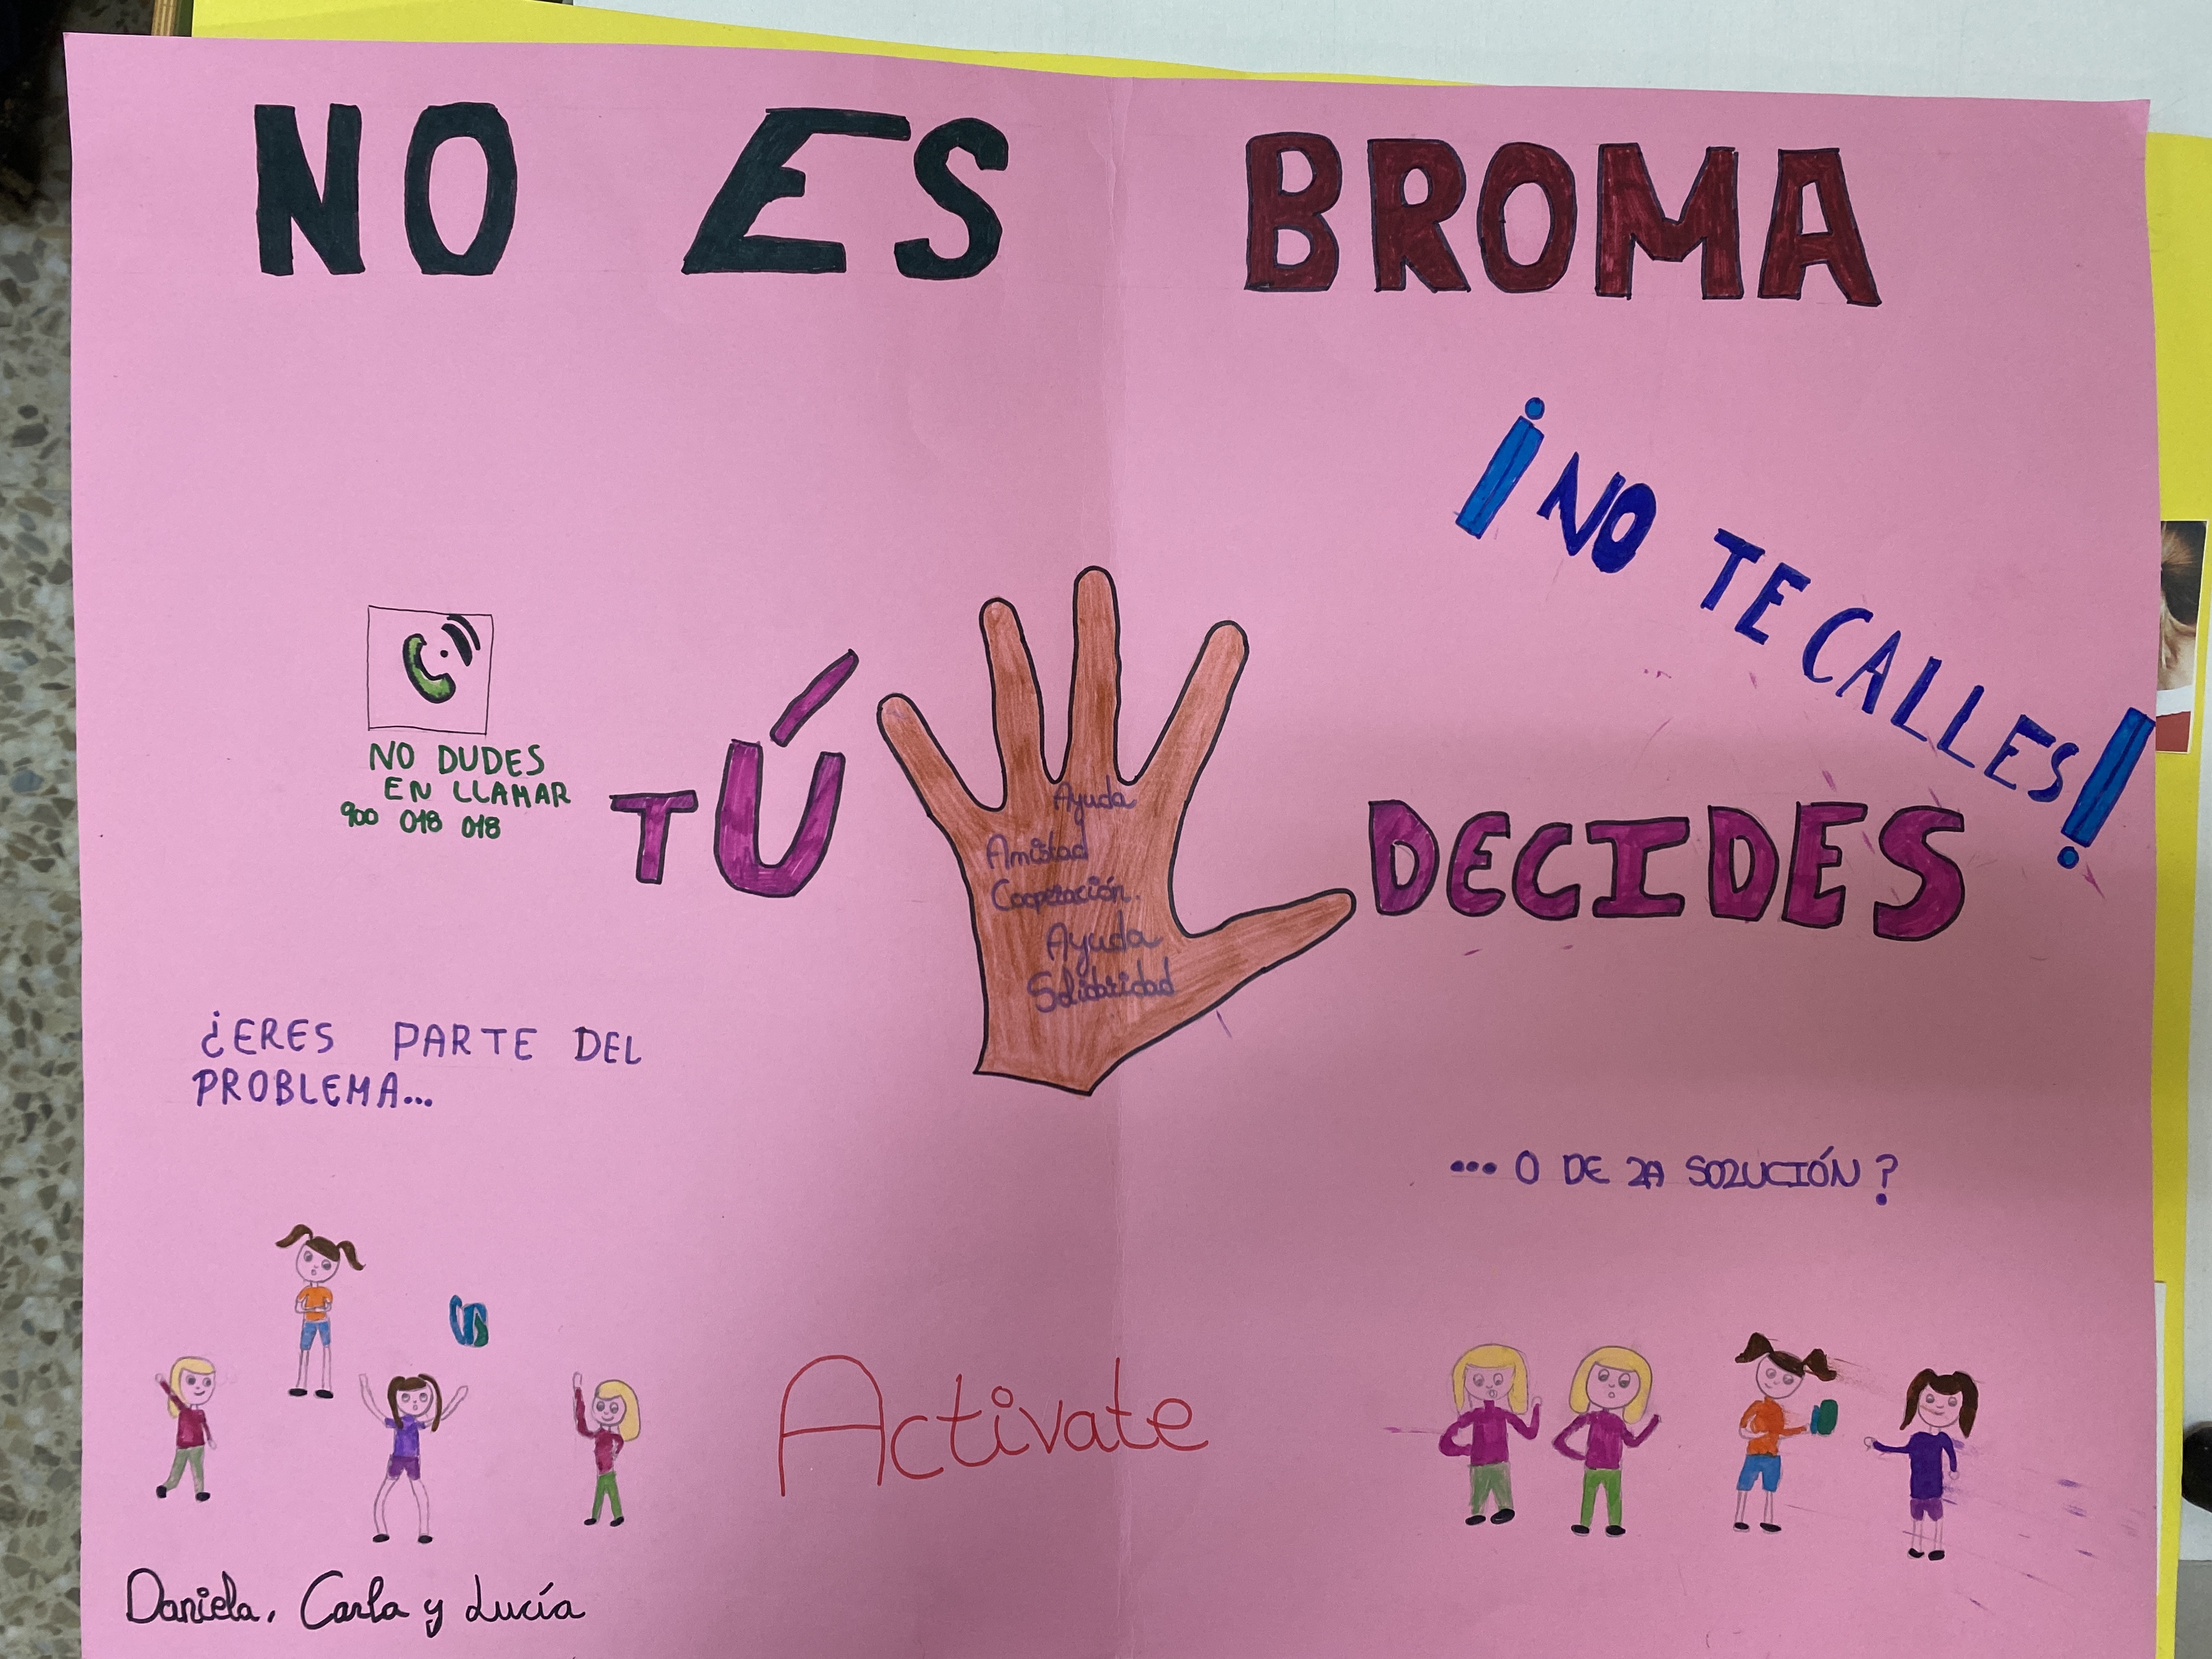 NO ES BROMA
¡NO TE CALLES!
NO DUDES
EN LLAMAR
900 018 018
TÚ DECIDES
Ayuda
Amistad
Cooperación.
Ayuda
Solidaridad
¿ERES PARTE DEL
PROBLEMA...
... O DE LA SOLUCIÓN?
Activate
Daniela, Carla y Lucía